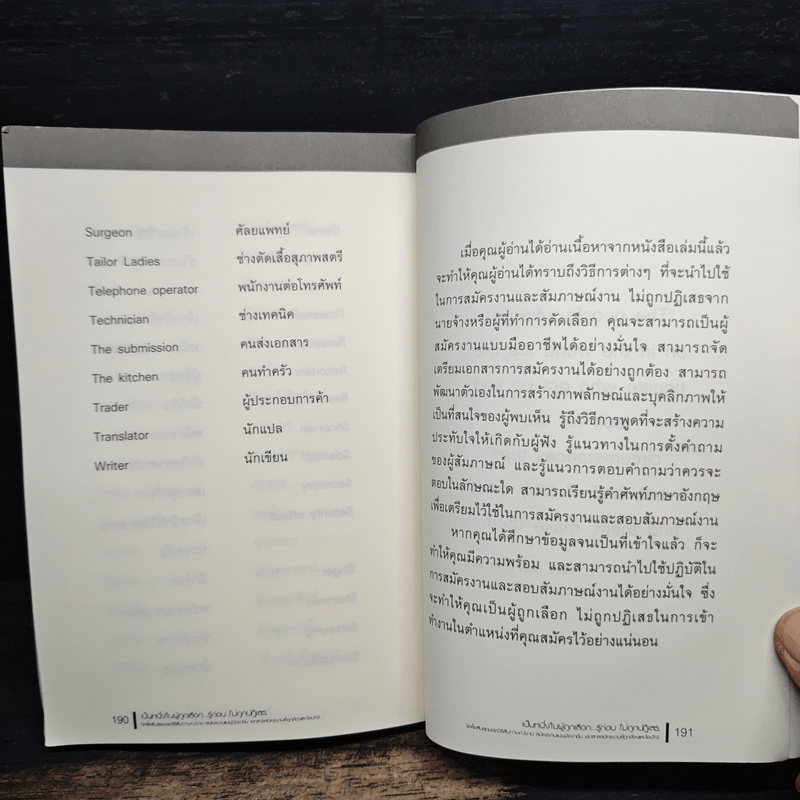 Surgeon ศัลยแพทย์
Tailor Ladies ช่างตัดเสื้อสุภาพสตรี
Telephone operator พนักงานต่อโทรศัพท์
Technician ช่างเทคนิค
The submission คนส่งเอกสาร
The kitchen คนทำครัว
Trader ผู้ประกอบการค้า
Translator นักแปล
Writer นักเขียน
190 เป็นหนึ่งในผู้ถูกเลือก...รู้ก่อน ไม่ถูกปฏิเสธ
เมื่อคุณผู้อ่านได้อ่านเนื้อหาจากหนังสือเล่มนี้แล้ว
จะทำให้คุณผู้อ่านได้ทราบถึงวิธีการต่างๆ ที่จะนำไปใช้
ในการสมัครงานและสัมภาษณ์งาน ไม่ถูกปฏิเสธจาก
นายจ้างหรือผู้ที่ทำการคัดเลือก คุณจะสามารถเป็นผู้
สมัครงานแบบมืออาชีพได้อย่างมั่นใจ สามารถจัด
เตรียมเอกสารการสมัครงานได้อย่างถูกต้อง สามารถ
พัฒนาตัวเองในการสร้างภาพลักษณ์และบุคลิกภาพให้
เป็นที่สนใจของผู้พบเห็น รู้ถึงวิธีการพูดที่จะสร้างความ
ประทับใจให้เกิดกับผู้ฟัง รู้แนวทางในการตั้งคำถาม
ของผู้สัมภาษณ์ และรู้แนวการตอบคำถามว่าควรจะ
ตอบในลักษณะใด สามารถเรียนรู้คำศัพท์ภาษาอังกฤษ
เพื่อเตรียมไว้ใช้ในการสมัครงานและสอบสัมภาษณ์งาน
หากคุณได้ศึกษาข้อมูลจนเป็นที่เข้าใจแล้ว ก็จะ
ทำให้คุณมีความพร้อม และสามารถนำไปใช้ปฏิบัติใน
การสมัครงานและสอบสัมภาษณ์งานได้อย่างมั่นใจ ซึ่ง
จะทำให้คุณเป็นผู้ถูกเลือก ไม่ถูกปฏิเสธในการเข้า
ทำงานในตำแหน่งที่คุณสมัครไว้อย่างแน่นอน
เป็นหนึ่งในผู้ถูกเลือก...รู้ก่อน ไม่ถูกปฏิเสธ 191